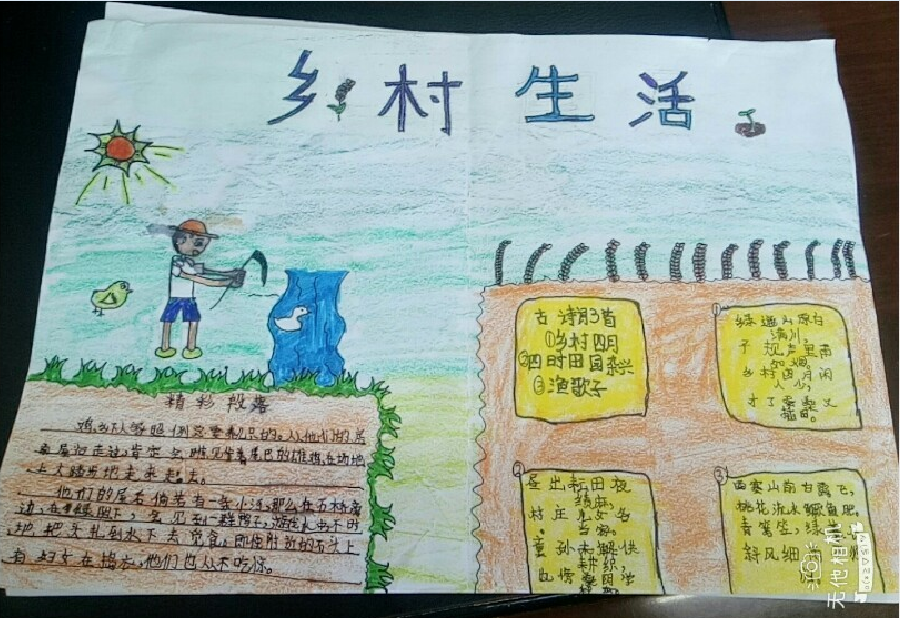 乡村生活
古诗词3首
①乡村四月
②四时田园杂兴
③渔歌子
①
绿遍山原白
满川,
子规声里雨
如烟。
乡村四月闲
人少,
才了蚕桑又
插田。
精彩段落
鸡,乡下人家照例总要养几只的。从他们的房
前屋后走过,肯定会瞧见
尾巴的雄鸡,在场地
上大踏步地走来走去。
他们的屋后倘若有一条小河,那么在石桥旁
边,在绿树
下,会见到一群鸭子,游戏水中,不时
地把头扎到水下去觅食。即使附近的石头上
有妇女在捣衣,他们也从不吃惊。
②
昼出耘田夜
绩麻,
村庄儿女各
当家。
童孙未解供
耕织,
也傍桑阴学
③
西塞山前白鹭飞,
桃花流水鳜鱼肥。
青箬笠,绿
斜风细
无他相机